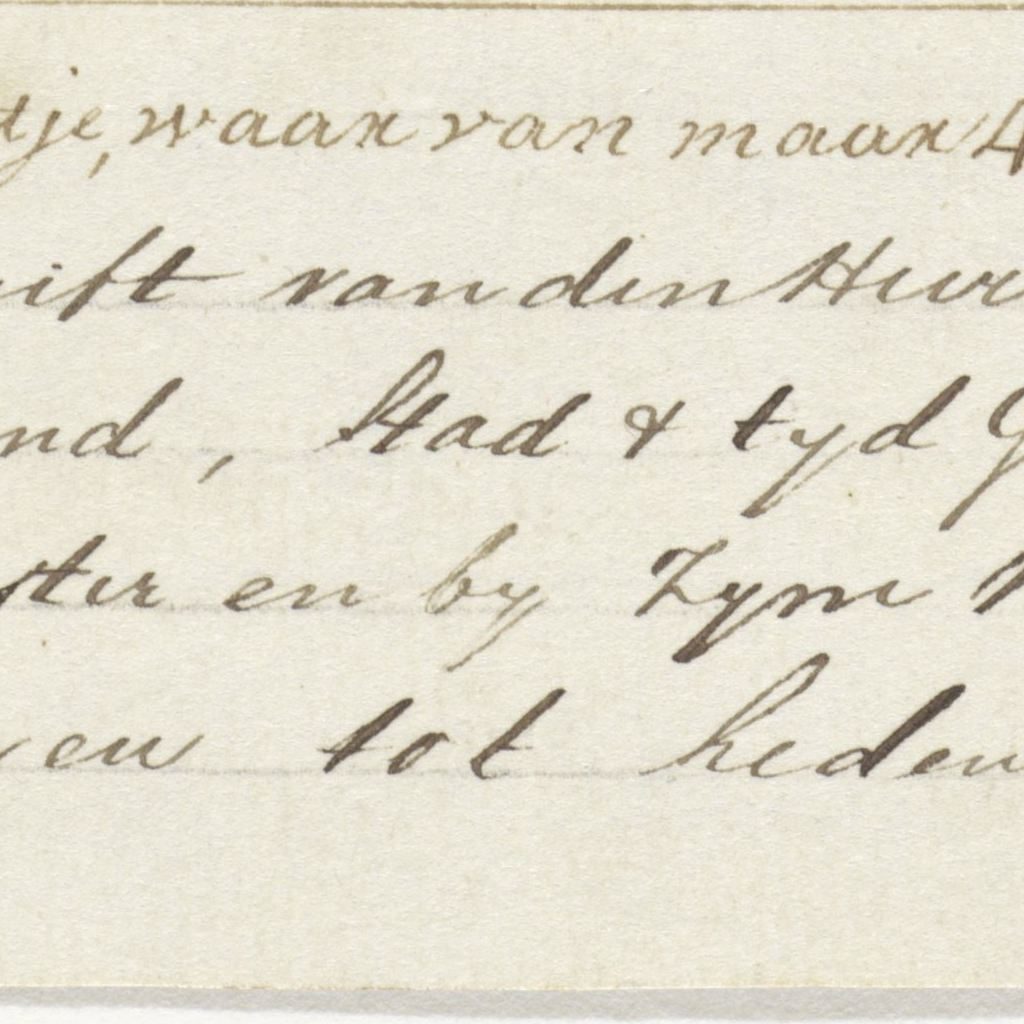 tje, waar van maar 4
ift van den Heer
nd, Stad & tyd G
ster en by Zyne
en tot heden